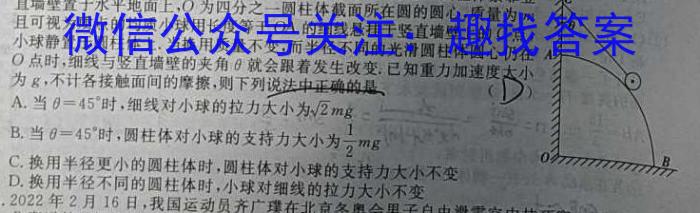 直墙壁置于水平地面上,O 为四分之一圆柱体截面所在圆的圆心,
微信公众号关注:趣找答案
O 点时,细线与竖直墙壁的夹角 θ 就会跟着发生改变. 已知重力加速度大小
为 g,不计各接触面间的摩擦,则下列说法中正确的是 (D)
A. 当 θ=45°时,细线对小球的拉力大小为√2mg
B. 当 θ=45°时,圆柱体对小球的支持力大小为1/2mg
C. 换用半径更小的圆柱体时,圆柱体对小球的支持力大小不变
D. 换用半径不同的圆柱体时,小球对细线的拉力大小不变
.2022 年 2 月 16 日,我国运动员齐广璞在北京冬奥会男子自由
A
O
B